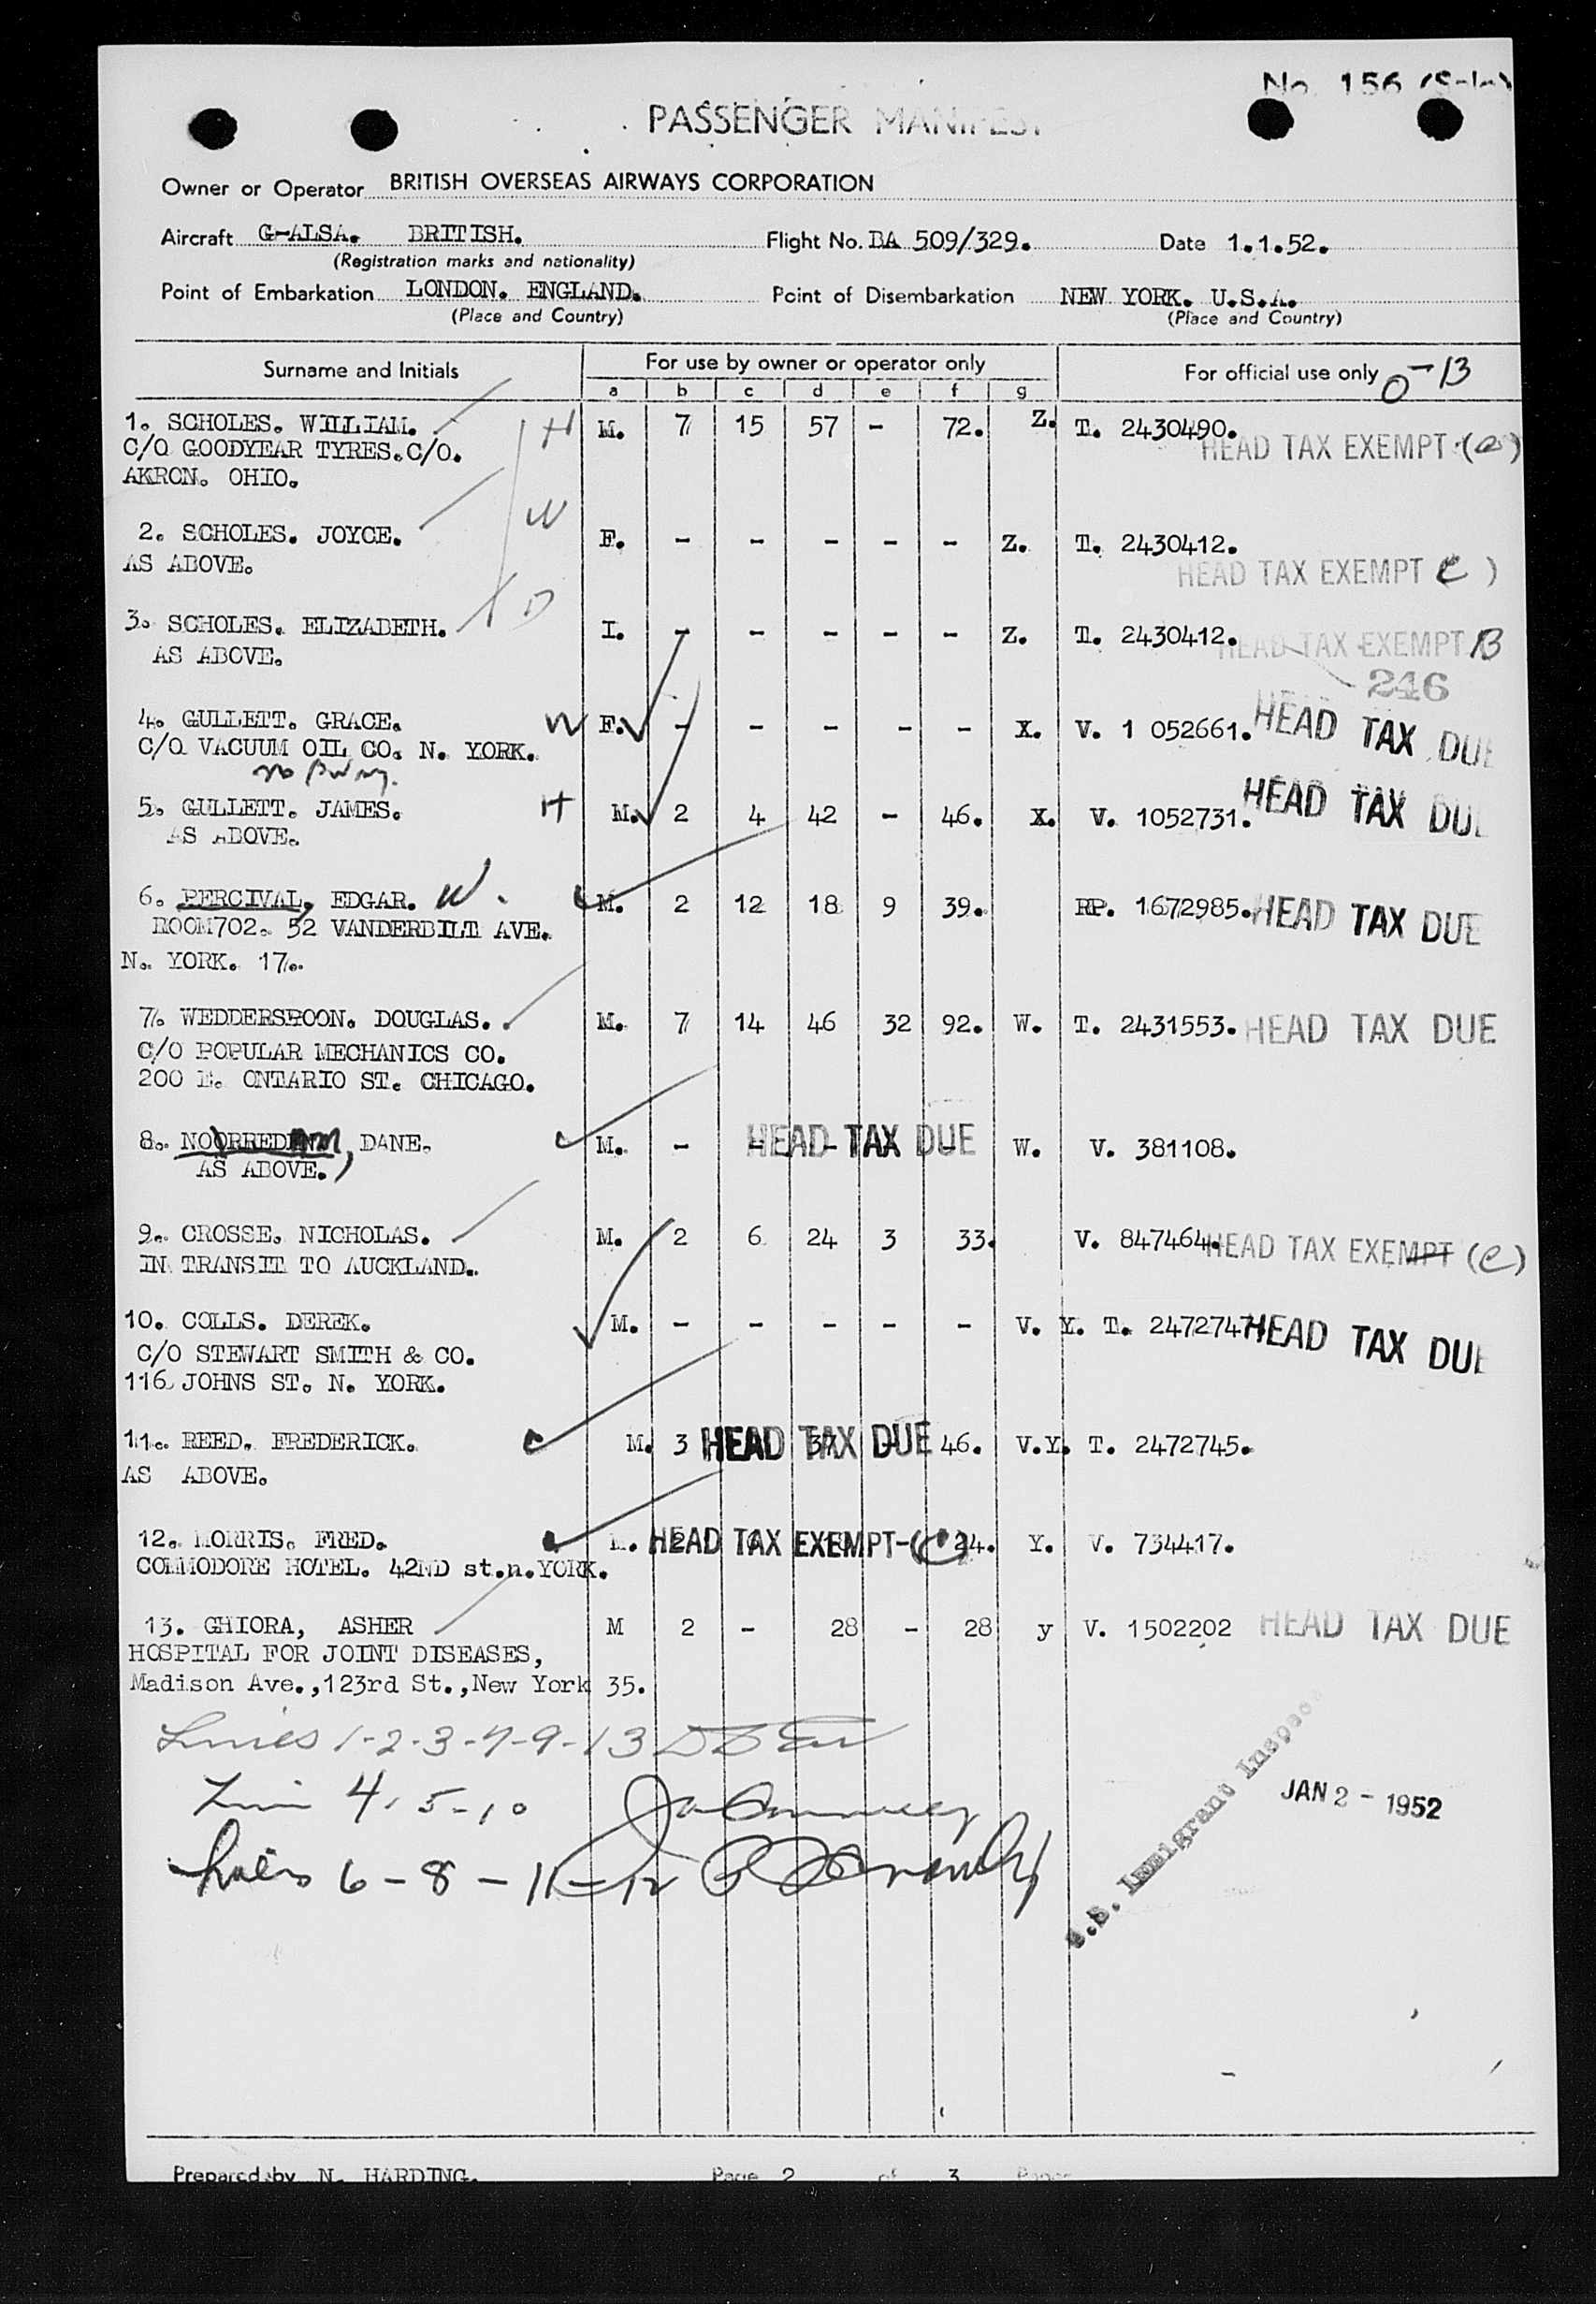 No. 156
PASSENGER MANIFEST
Owner or Operator BRITISH OVERSEAS AIRWAYS CORPORATION
Aircraft G-ALSA. BRITISH. Flight No. BA 509/329. Date 1.1.52.
(Registration marks and nationality)
Point of Embarkation LONDON. ENGLAND. Point of Disembarkation NEW YORK. U.S.A.
(Place and Country) (Place and Country)
Surname and Initials For use by owner or operator only For official use only O-B
a b c d e f g
1. SCHOLES. WILLIAM. H M. 7 15 57 - 72. Z. T. 2430490.
C/O GOODYEAR TYRES.C/O. HEAD TAX EXEMPT (e)
AKRON. OHIO.
W
2. SCHOLES. JOYCE. F. - - - - - Z. T. 2430412.
AS ABOVE. HEAD TAX EXEMPT (e)
D
3. SCHOLES. ELIZABETH. I. - - - - - Z. T. 2430412. HEAD TAX EXEMPT B
AS ABOVE.
246
4. GULLETT. GRACE. W F. - - - - - X. V. 1 052661. HEAD TAX DUE
C/O VACUUM OIL CO. N. YORK.
no
5. GULLETT. JAMES. H M. 2 4 42 - 46. X. V. 1052731. HEAD TAX DUE
AS ABOVE.
6. PERCIVAL, EDGAR. W. M. 2 12 18 9 39. RP. 1672985. HEAD TAX DUE
ROOM702. 52 VANDERBILT AVE.
N. YORK. 17.
7. WEDDERSPOON. DOUGLAS. M. 7 14 46 32 92. W. T. 2431553. HEAD TAX DUE
C/O POPULAR MECHANICS CO.
200 E. ONTARIO ST. CHICAGO.
8. DANE. M. - - - HEAD TAX DUE W. V. 381108.
AS ABOVE.
9. CROSSE. NICHOLAS. M. 2 6 24 3 33. V. 847464. HEAD TAX EXEMPT (e)
IN TRANSIT TO AUCKLAND.
10. COLLS. DEREK. M. - - - - - V. Y. T. 2472747 HEAD TAX DUE
C/O STEWART SMITH & CO.
116 JOHNS ST. N. YORK.
11. REED. FREDERICK. M. 3 HEAD TAX DUE 46. V.Y. T. 2472745.
AS ABOVE.
12. MORRIS. FRED. M. 2 HEAD TAX EXEMPT-(e) 24. Y. V. 734417.
COMMODORE HOTEL. 42ND st.n.YORK.
13. GHIORA, ASHER M 2 - 28 - 28 y V. 1502202 HEAD TAX DUE
HOSPITAL FOR JOINT DISEASES,
Madison Ave.,123rd St.,New York 35.
Lines 1-2-3-7-9-13
Line 4-5-10
JAN 2 - 1952
Lines 6-8-11-12
U.S. Immigrant Inspec
Prepared by N. HARDING. Page 2 of 3 Pages